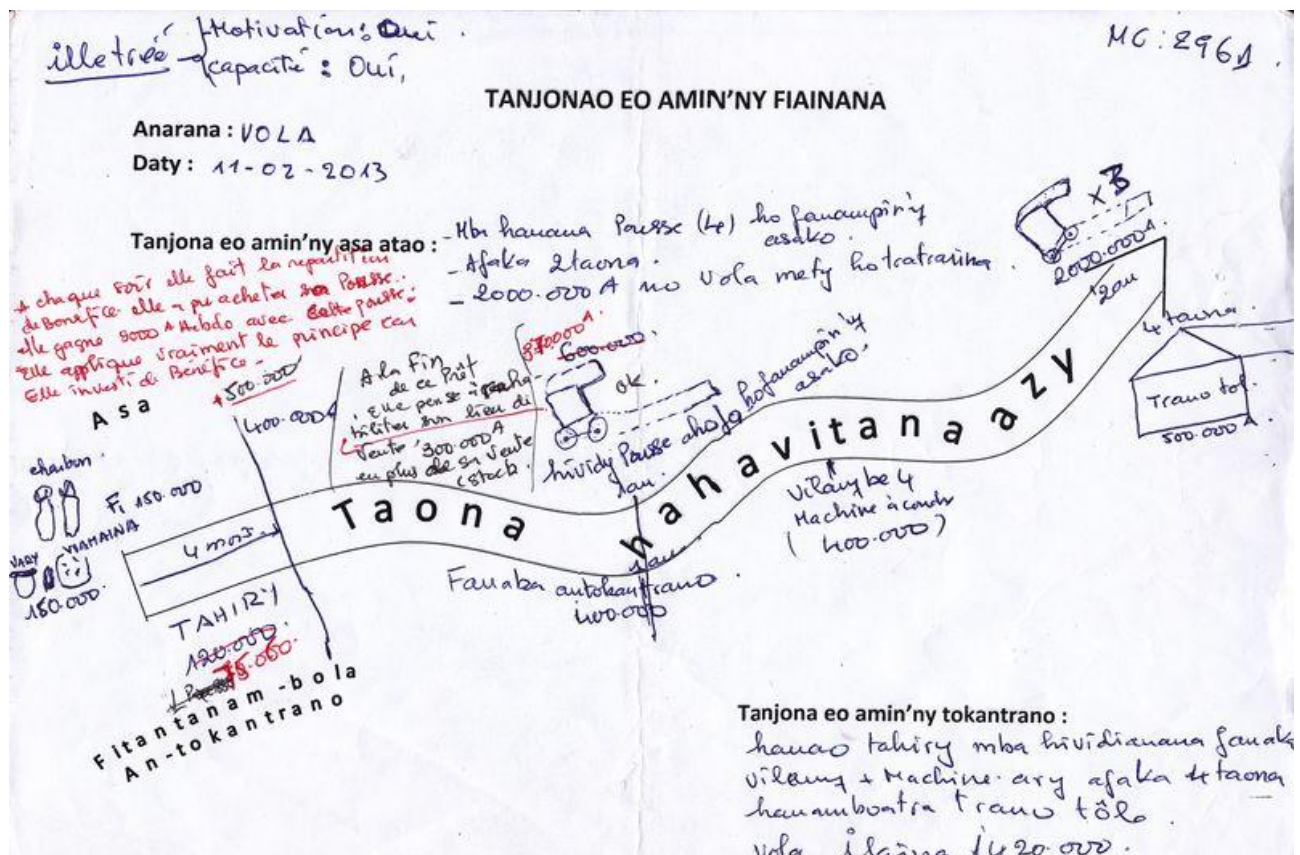 illetrée
Motivation : Oui.
capacité : Oui,
MG: 296
TANJONAO EO AMIN'NY FIAINANA
Anarana : VOLA
Daty : 11-02-2013
Tanjona eo amin'ny asa atao :
- Mba hanana Pousse (4) ho fanampin'ny
asako.
- Afaka 2taona.
- 2000.000 A no vola mety hotratrarina.
A chaque soir elle fait la repartition
de Bénéfice. elle a pu acheter son Pousse.
elle gagne 5000 A hebdo avec cette pousse.
elle applique vraiment le principe car
Elle investi de Bénéfice -
+ 500.000
400.000A
A la Fin
de ce Prêt
Elle pense à réha-
biliter son lieu de
Vente 300.000 A
en plus de sa vente
(stock)
600.000
ok.
hividy Pousse
ho fanampin'ny
asako.
1an.
x 3
2000.000 A
2an
4 taona.
Trano tol.
500.000 A
Asa
charbon.
Fi 150.000
VARY
VIAMAINA
150.000.
4 mois.
Taona hahavitana azy
Vilany be 4
Machine à coudre
( 400.000 )
Fanaka antokantrano
400.000
1an
TAHIRY
120.000
75.000
Fitantanam-bola
An-tokantrano
Tanjona eo amin'ny tokantrano :
hanao tahiry mba hividianana fanaka
vilany + Machine. ary afaka 4 taona
hanamboatra trano tôle.
vola ilaina 1420.000.